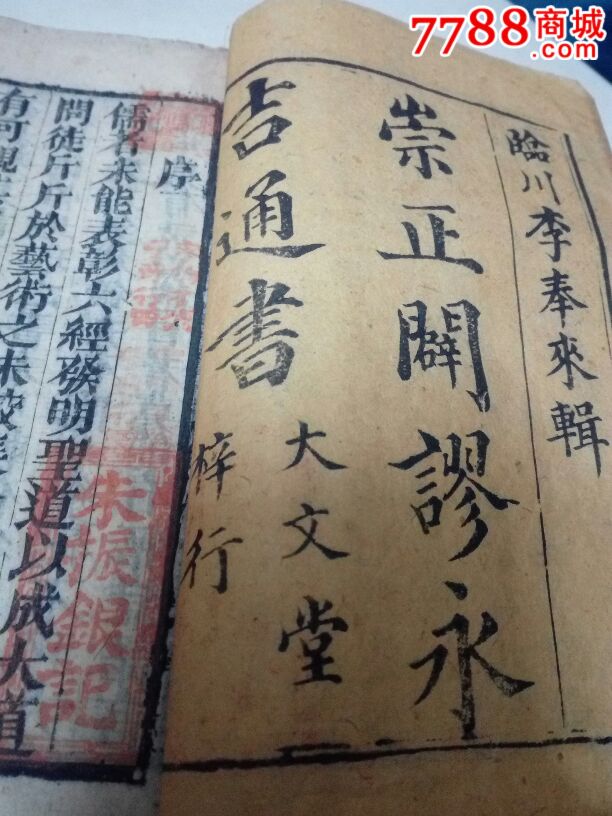 7788商城
.com
臨川李奉來輯
崇正闢謬永
吉通書
大文堂
梓行
序
儒者未能表彰六經發明聖道以成大道
間徒斤斤於藝術之末
有可觀
朱振銀記